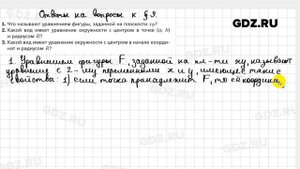 Ответы на вопросы к § 9
GDZ.RU
1. Что называют уравнением фигуры, заданной на плоскости xy?
2. Какой вид имеет уравнение окружности с центром в точке (a; b)
и радиусом R?
3. Какой вид имеет уравнение окружности с центром в начале координат и радиусом R?
1. Уравнением фигуры F, заданной на пл-ти xy, называют
уравнение с 2-мя переменными x и y, имеющее такие
свойства: 1) если точка принадлежит F, то её координа
GDZ.RU